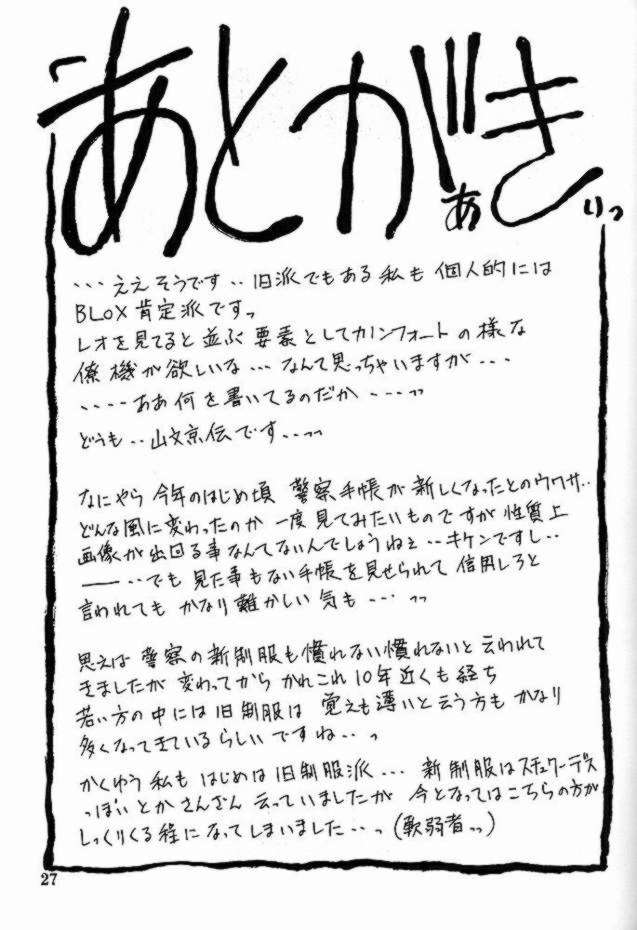 あとがき
ぁ りっ
・・・ええそうです・・旧派でもある私も個人的には
BLOX肯定派ですっ
レオを見てると並ぶ要素としてカノンフォートの様な
僚機が欲しいな・・・なんて思っちゃいますが・・・
・・・・ああ何を書いてるのだか・・・・っっ
どうも・・山文京伝です・・っっ
なにやら今年のはじめ頃 警察手帳が新しくなったとのウワサ・・
どんな風に変わったのか一度見てみたいものですが性質上
画像が出回る事なんてないんでしょうねぇ・・キケンですし・・
――・・でも見た事もない手帳を見せられて信用しろと
言われてもかなり難かしい気も・・・っっ
思えば警察の新制服も慣れない慣れないと云われて
きましたが変わってからかれこれ10年近くも経ち
若い方の中には旧制服は覚えも薄いと云う方もかなり
多くなってきているらしいですね・・っ
かくゆう私もはじめは旧制服派・・・新制服はスチュワーデス
っぽいとかさんざん云っていましたが今となってはこちらの方が
しっくりくる程になってしまいました・・っ(軟弱者っっ)
27